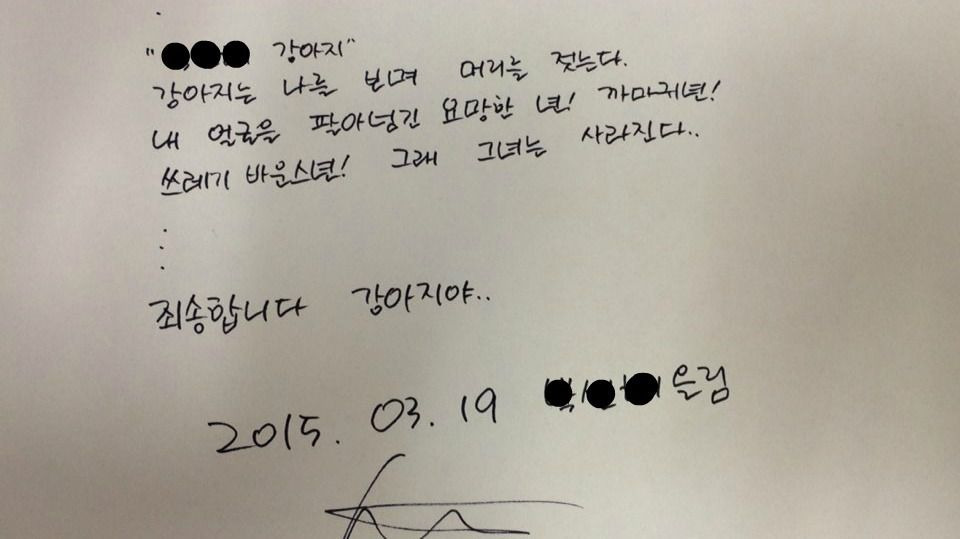 " 강아지"
강아지는 나를 보며 머리를 젖는다.
내 얼굴을 팔아넘긴 요망한 년! 까마귀년!
쓰레기 바운스년! 그래 그녀는 사라진다..
죄송합니다 강아지야..
2015. 03. 19 올림